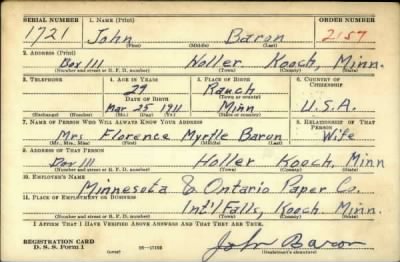 SERIAL NUMBER 1. NAME (Print) ORDER NUMBER
1721 John Baron 2157
(First) (Middle) (Last)
2. ADDRESS (Print)
Box 111 Holler Kooch, Minn.
(Number and street or R. F. D. number) (Town) (County) (State)
3. TELEPHONE 4. AGE IN YEARS 5. PLACE OF BIRTH 6. COUNTRY OF CITIZENSHIP
29 Rauch
DATE OF BIRTH (Town or county)
Mar 25 1911 Minn U.S.A.
(Exchange) (Number) (Mo.) (Day) (Yr.) (State or country)
7. NAME OF PERSON WHO WILL ALWAYS KNOW YOUR ADDRESS 8. RELATIONSHIP OF THAT PERSON
Mrs Florence Myrtle Baron Wife
(Mr., Mrs., Miss) (First) (Middle) (Last)
9. ADDRESS OF THAT PERSON
Box 111 Holler Kooch, Minn
(Number and street or R. F. D. number) (Town) (County) (State)
10. EMPLOYER'S NAME
Minnesota & Ontario Paper Co.
11. PLACE OF EMPLOYMENT OR BUSINESS
Int'l Falls, Kooch. Minn.
(Number and street or R. F. D. number) (Town) (County) (State)
I AFFIRM THAT I HAVE VERIFIED ABOVE ANSWERS AND THAT THEY ARE TRUE.
REGISTRATION CARD
D. S. S. Form 1 (over) John Baron
(Registrant's signature)